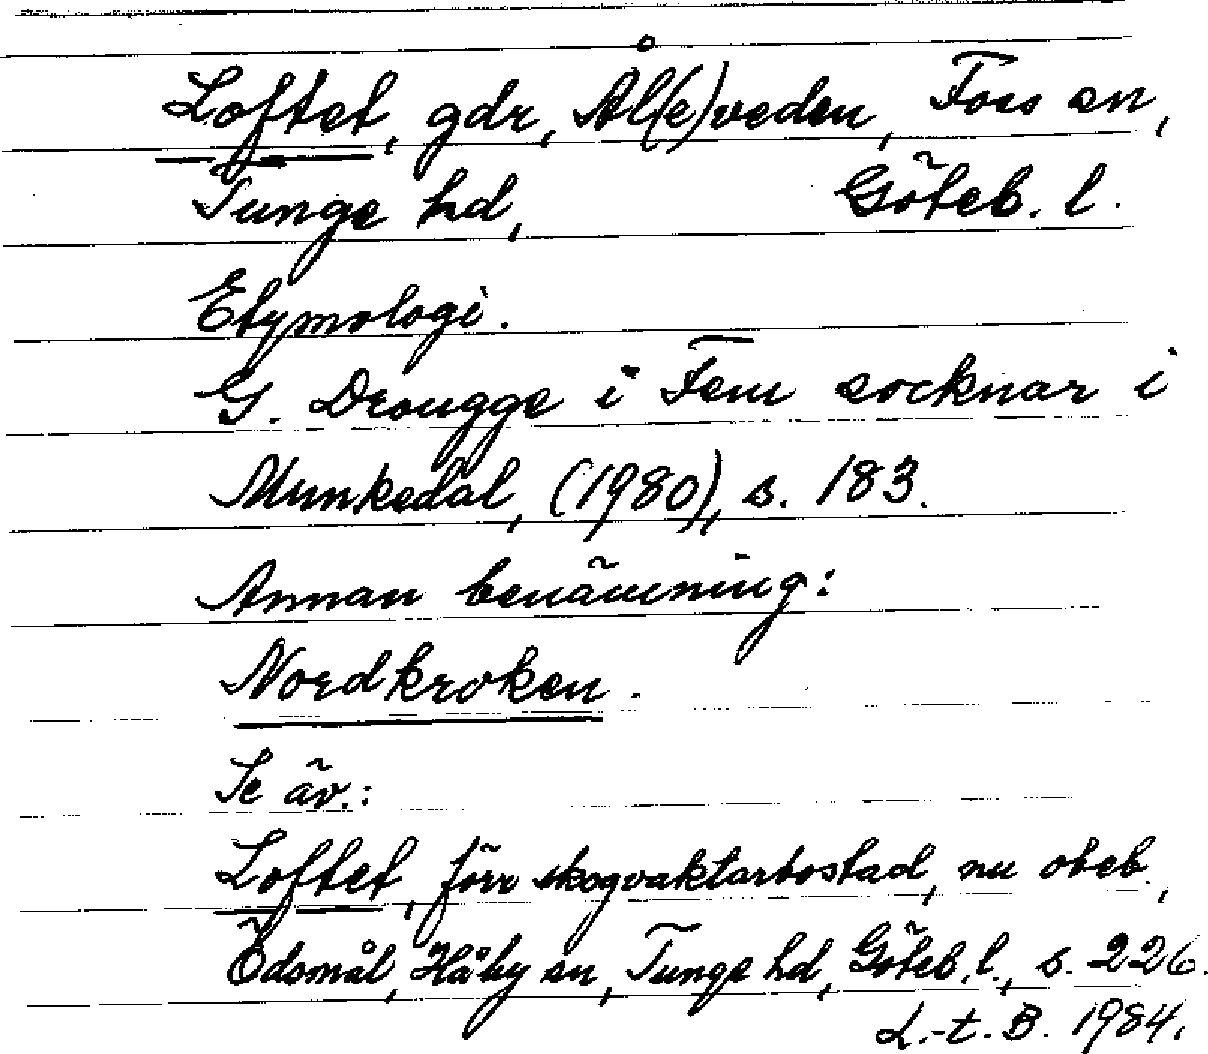 Loftet, gdr, Ål(e)veden, Foss sn,
Tunge hd, Göteb. l.
Etymologi.
G. Drougge i Fem socknar i
Munkedal, (1980), s. 183.
Annan benämning:
Nordkroken.
Se äv.:
Loftet, förr skogvaktarbostad, nu obeb.,
Ödsmål, Håby sn, Tunge hd, Göteb. l., s. 226.
L.-t. B. 1984.